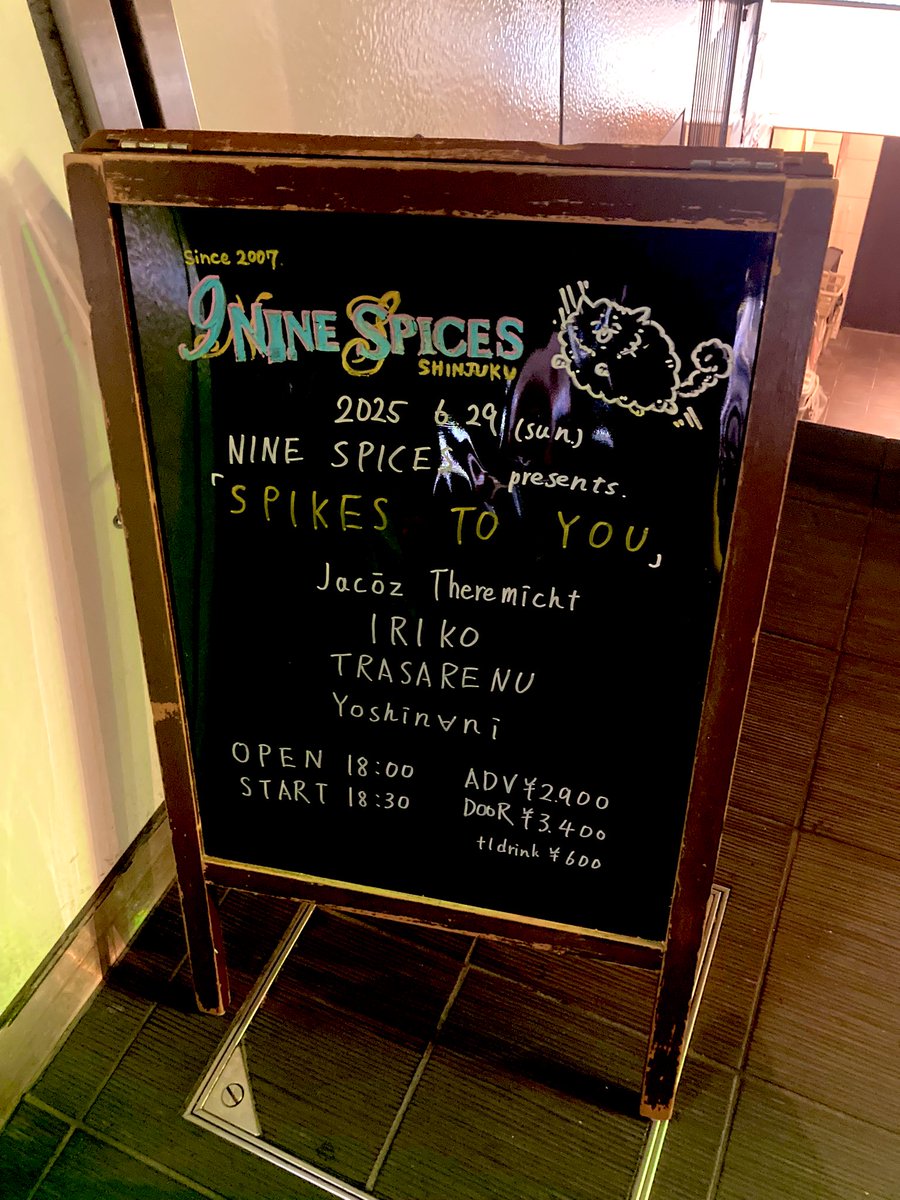 Since 2007.
9 NINE SPICES
SHINJUKU
2025 6.29 (sun.)
NINE SPICES presents.
「SPIKES TO YOU」
Jacōz Theremīcht
IRIKO
TRASARENU
Yoshīn∀nī
OPEN 18:00
START 18:30
ADV ¥2.900
DOOR ¥3.400
+1drink ¥600